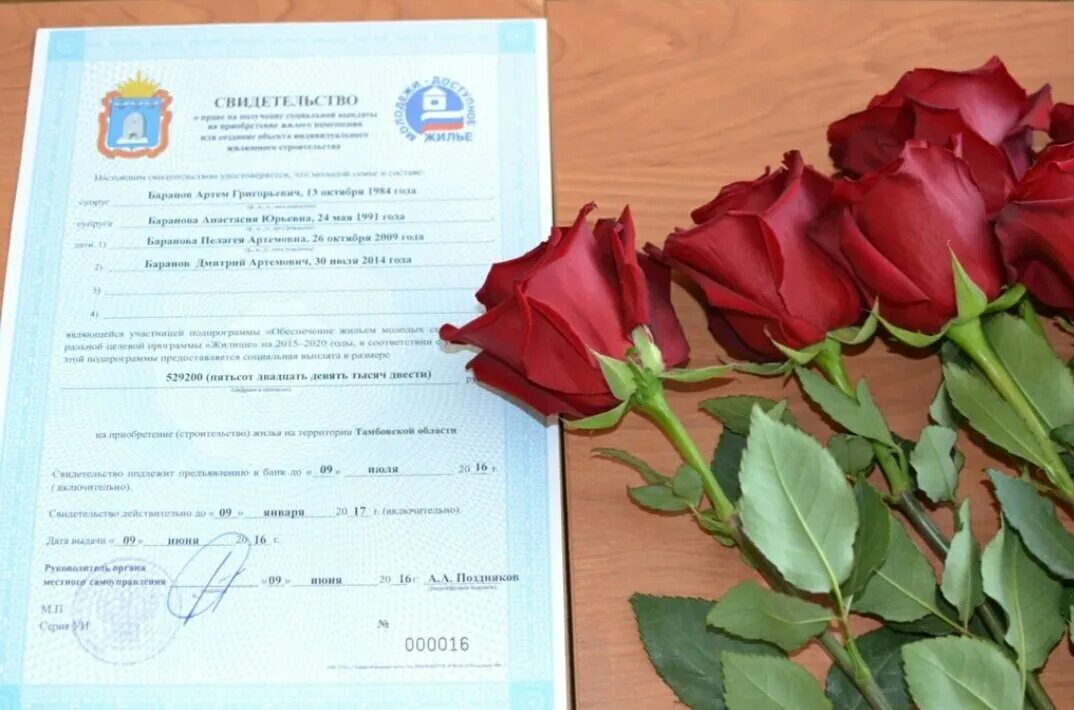 СВИДЕТЕЛЬСТВО
о праве на получение социальной выплаты
на приобретение жилого помещения
или создание объекта индивидуального
жилищного строительства
МОЛОДЕЖИ - ДОСТУПНОЕ
ЖИЛЬЕ
Настоящим свидетельством удостоверяется, что молодой семье в составе:
супруг Баранов Артем Григорьевич, 13 октября 1984 года
супруга Баранова Анастасия Юрьевна, 24 мая 1991 года
дети: 1) Баранова Пелагея Артемовна, 26 октября 2009 года
2) Баранов Дмитрий Артемович, 30 июля 2014 года
3)
4)
являющейся участницей подпрограммы «Обеспечение жильем молодых
ральной целевой программы «Жилище» на 2015–2020 годы, в соответствии с
этой подпрограммы предоставляется социальная выплата в размере
529200 (пятьсот двадцать девять тысяч двести)
на приобретение (строительство) жилья на территории Тамбовской области
Свидетельство подлежит предъявлению в банк до «09» июля 2016 г.
(включительно).
Свидетельство действительно до «09» января 2017 г. (включительно).
Дата выдачи «09» июня 2016 г.
Руководитель органа
местного самоуправления «09» июня 2016 г. А.А. Поздняков
М.П.
Серия УИ № 000016